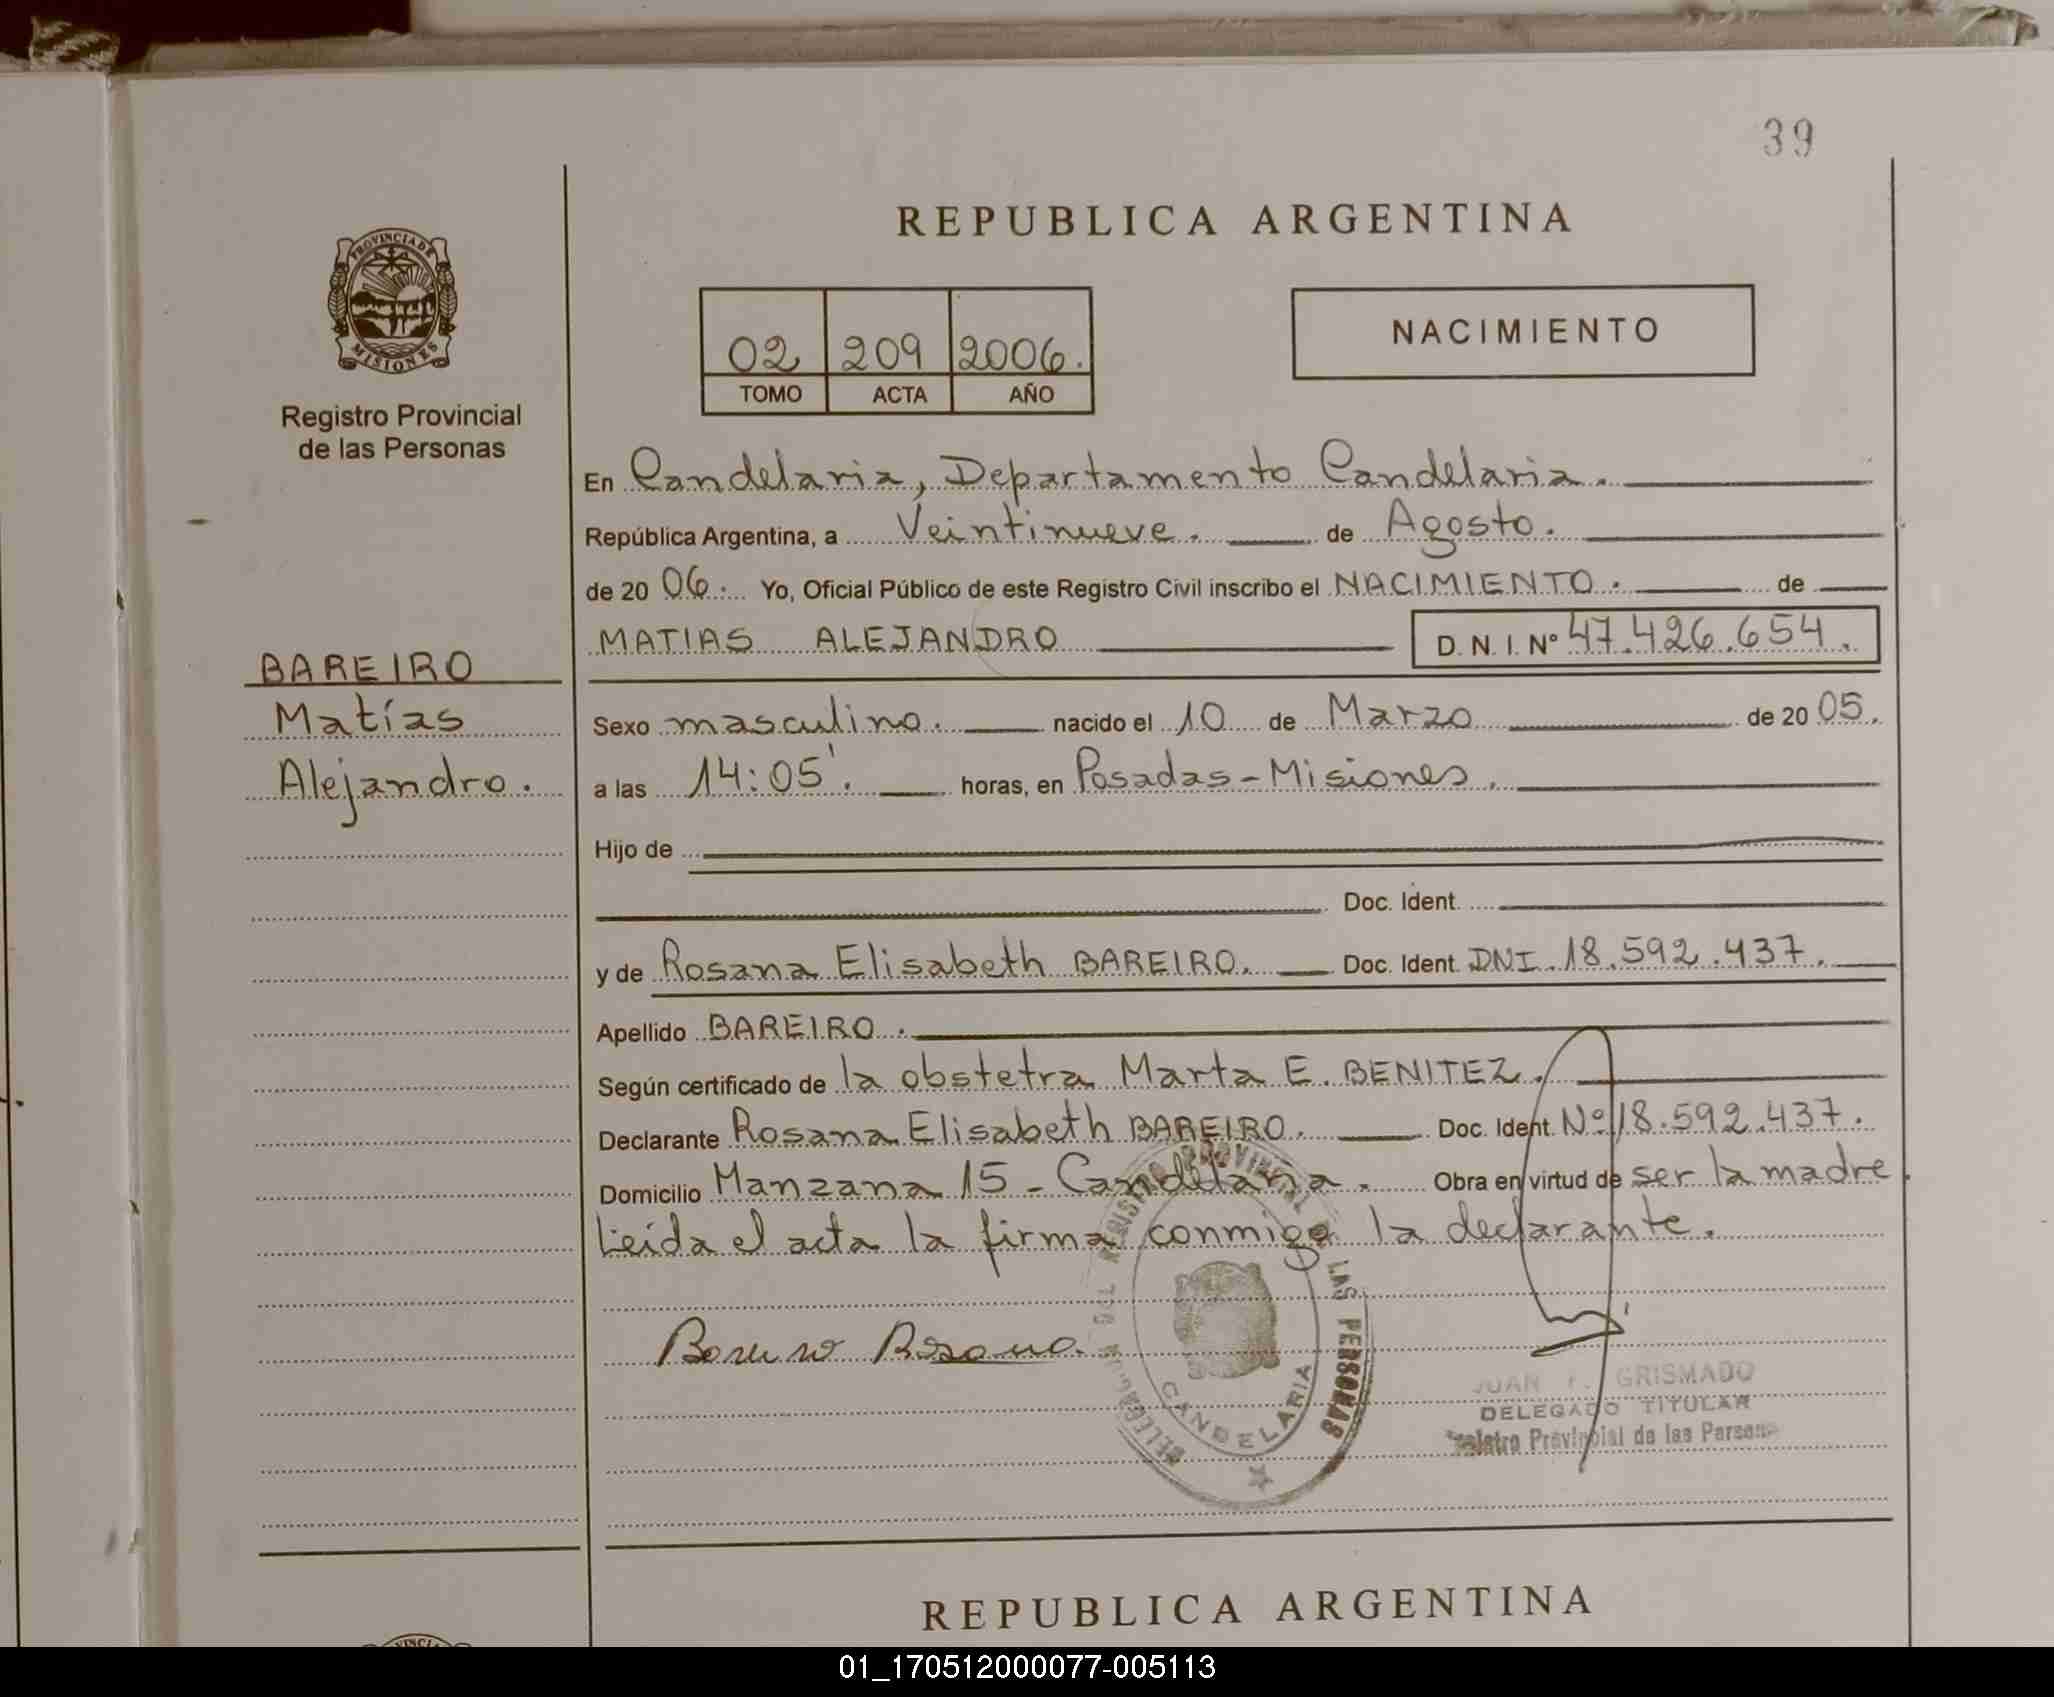 39
REPUBLICA ARGENTINA
PROVINCIA DE
MISIONES
Registro Provincial
de las Personas
02 209 2006.
TOMO ACTA AÑO
NACIMIENTO
En Candelaria, Departamento Candelaria.
República Argentina, a Veintinueve. de Agosto.
de 20 06. Yo, Oficial Público de este Registro Civil inscribo el NACIMIENTO. de
MATIAS ALEJANDRO D. N. I. Nº 47.426.654.
BAREIRO
Matías
Alejandro.
Sexo masculino. nacido el 10 de Marzo de 20 05.
a las 14:05'. horas, en Posadas-Misiones.
Hijo de
Doc. Ident.
y de Rosana Elisabeth BAREIRO. Doc. Ident. DNI. 18.592.437.
Apellido BAREIRO.
Según certificado de la obstetra Marta E. BENITEZ.
Declarante Rosana Elisabeth BAREIRO. Doc. Ident. Nº 18.592.437.
Domicilio Manzana 15 - Candelaria. Obra en virtud de ser la madre.
Leída el acta la firma conmigo la declarante.
DELEGACION DEL REGISTRO PROVINCIAL DE LAS PERSONAS
CANDELARIA
JUAN GRISMADO
DELEGADO TITULAR
Registro Provincial de las Personas
REPUBLICA ARGENTINA
01_170512000077-005113